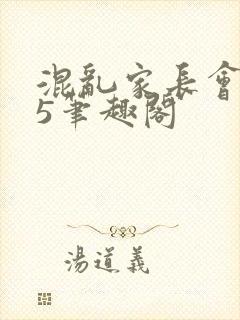 混亂家長會
5筆趣閣
湯道義